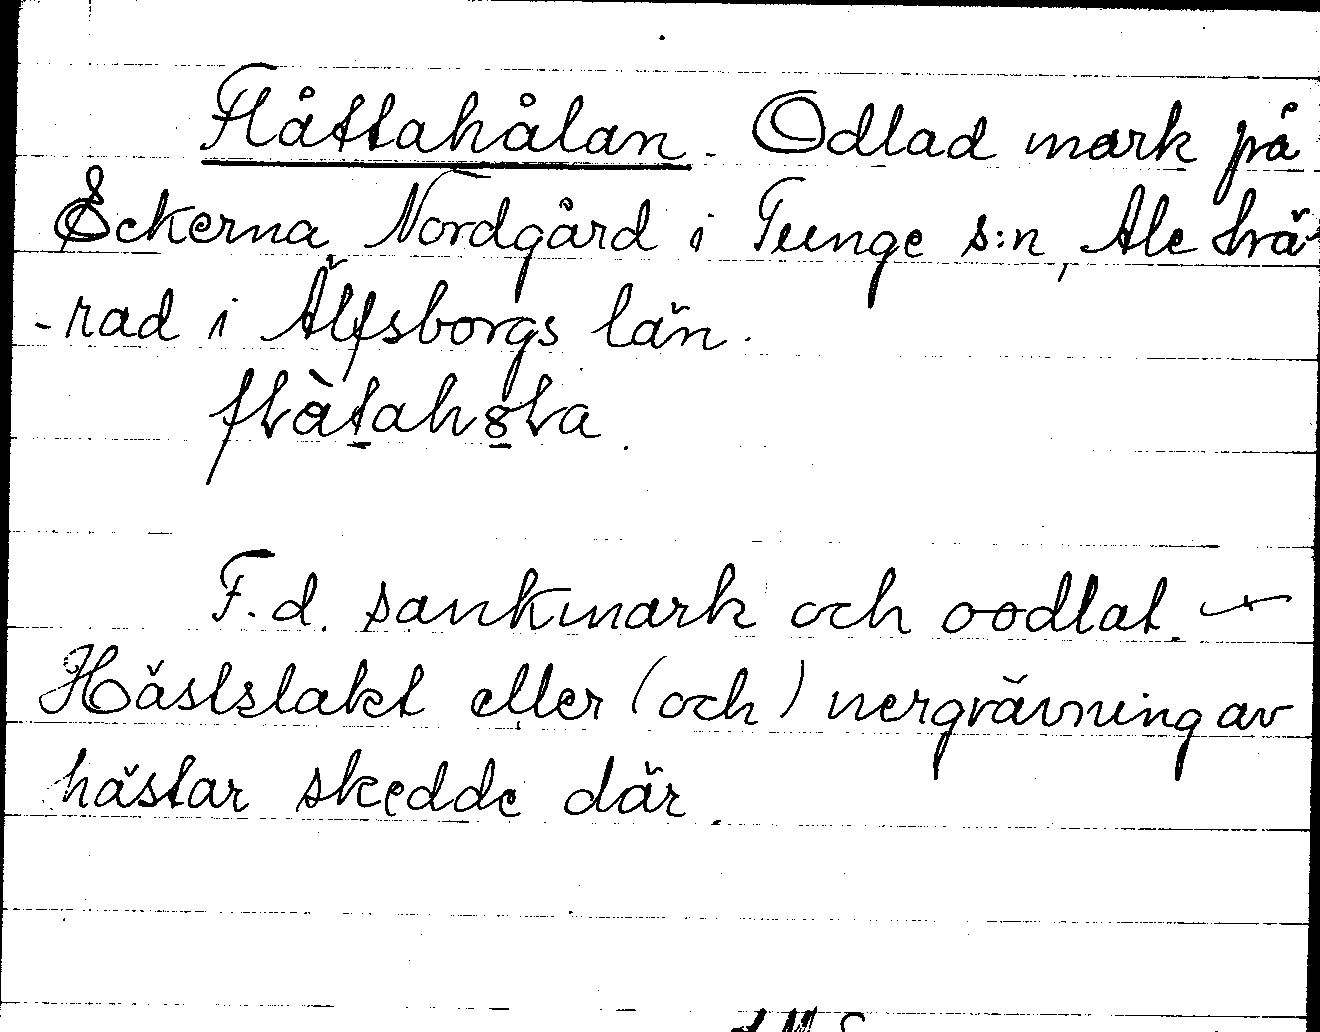 Flåttahålan. Odlad mark på
Eckerna Nordgård i Tunge s:n, Ale hä-
-rad i Älfsborgs län.
F.d. sankmark och oodlat. —
Hästslakt eller (och) nergrävning av
hästar skedde där.